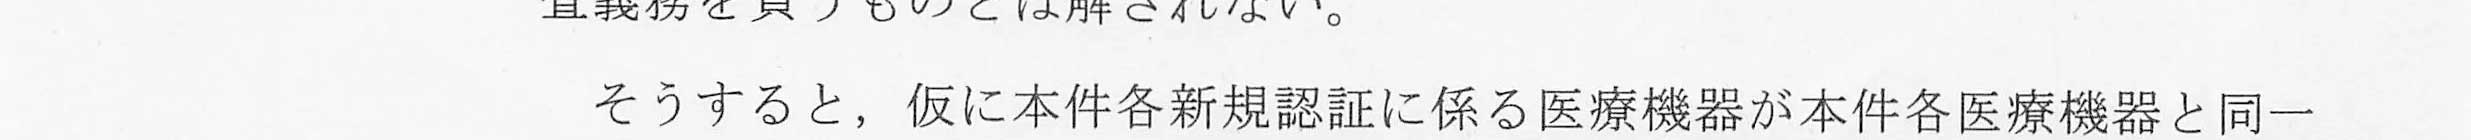 査義務を負うものとは解されない。
そうすると，仮に本件各新規認証に係る医療機器が本件各医療機器と同一